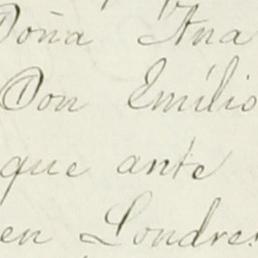 Doña Ana
Don Emilio
que ante
en Londres